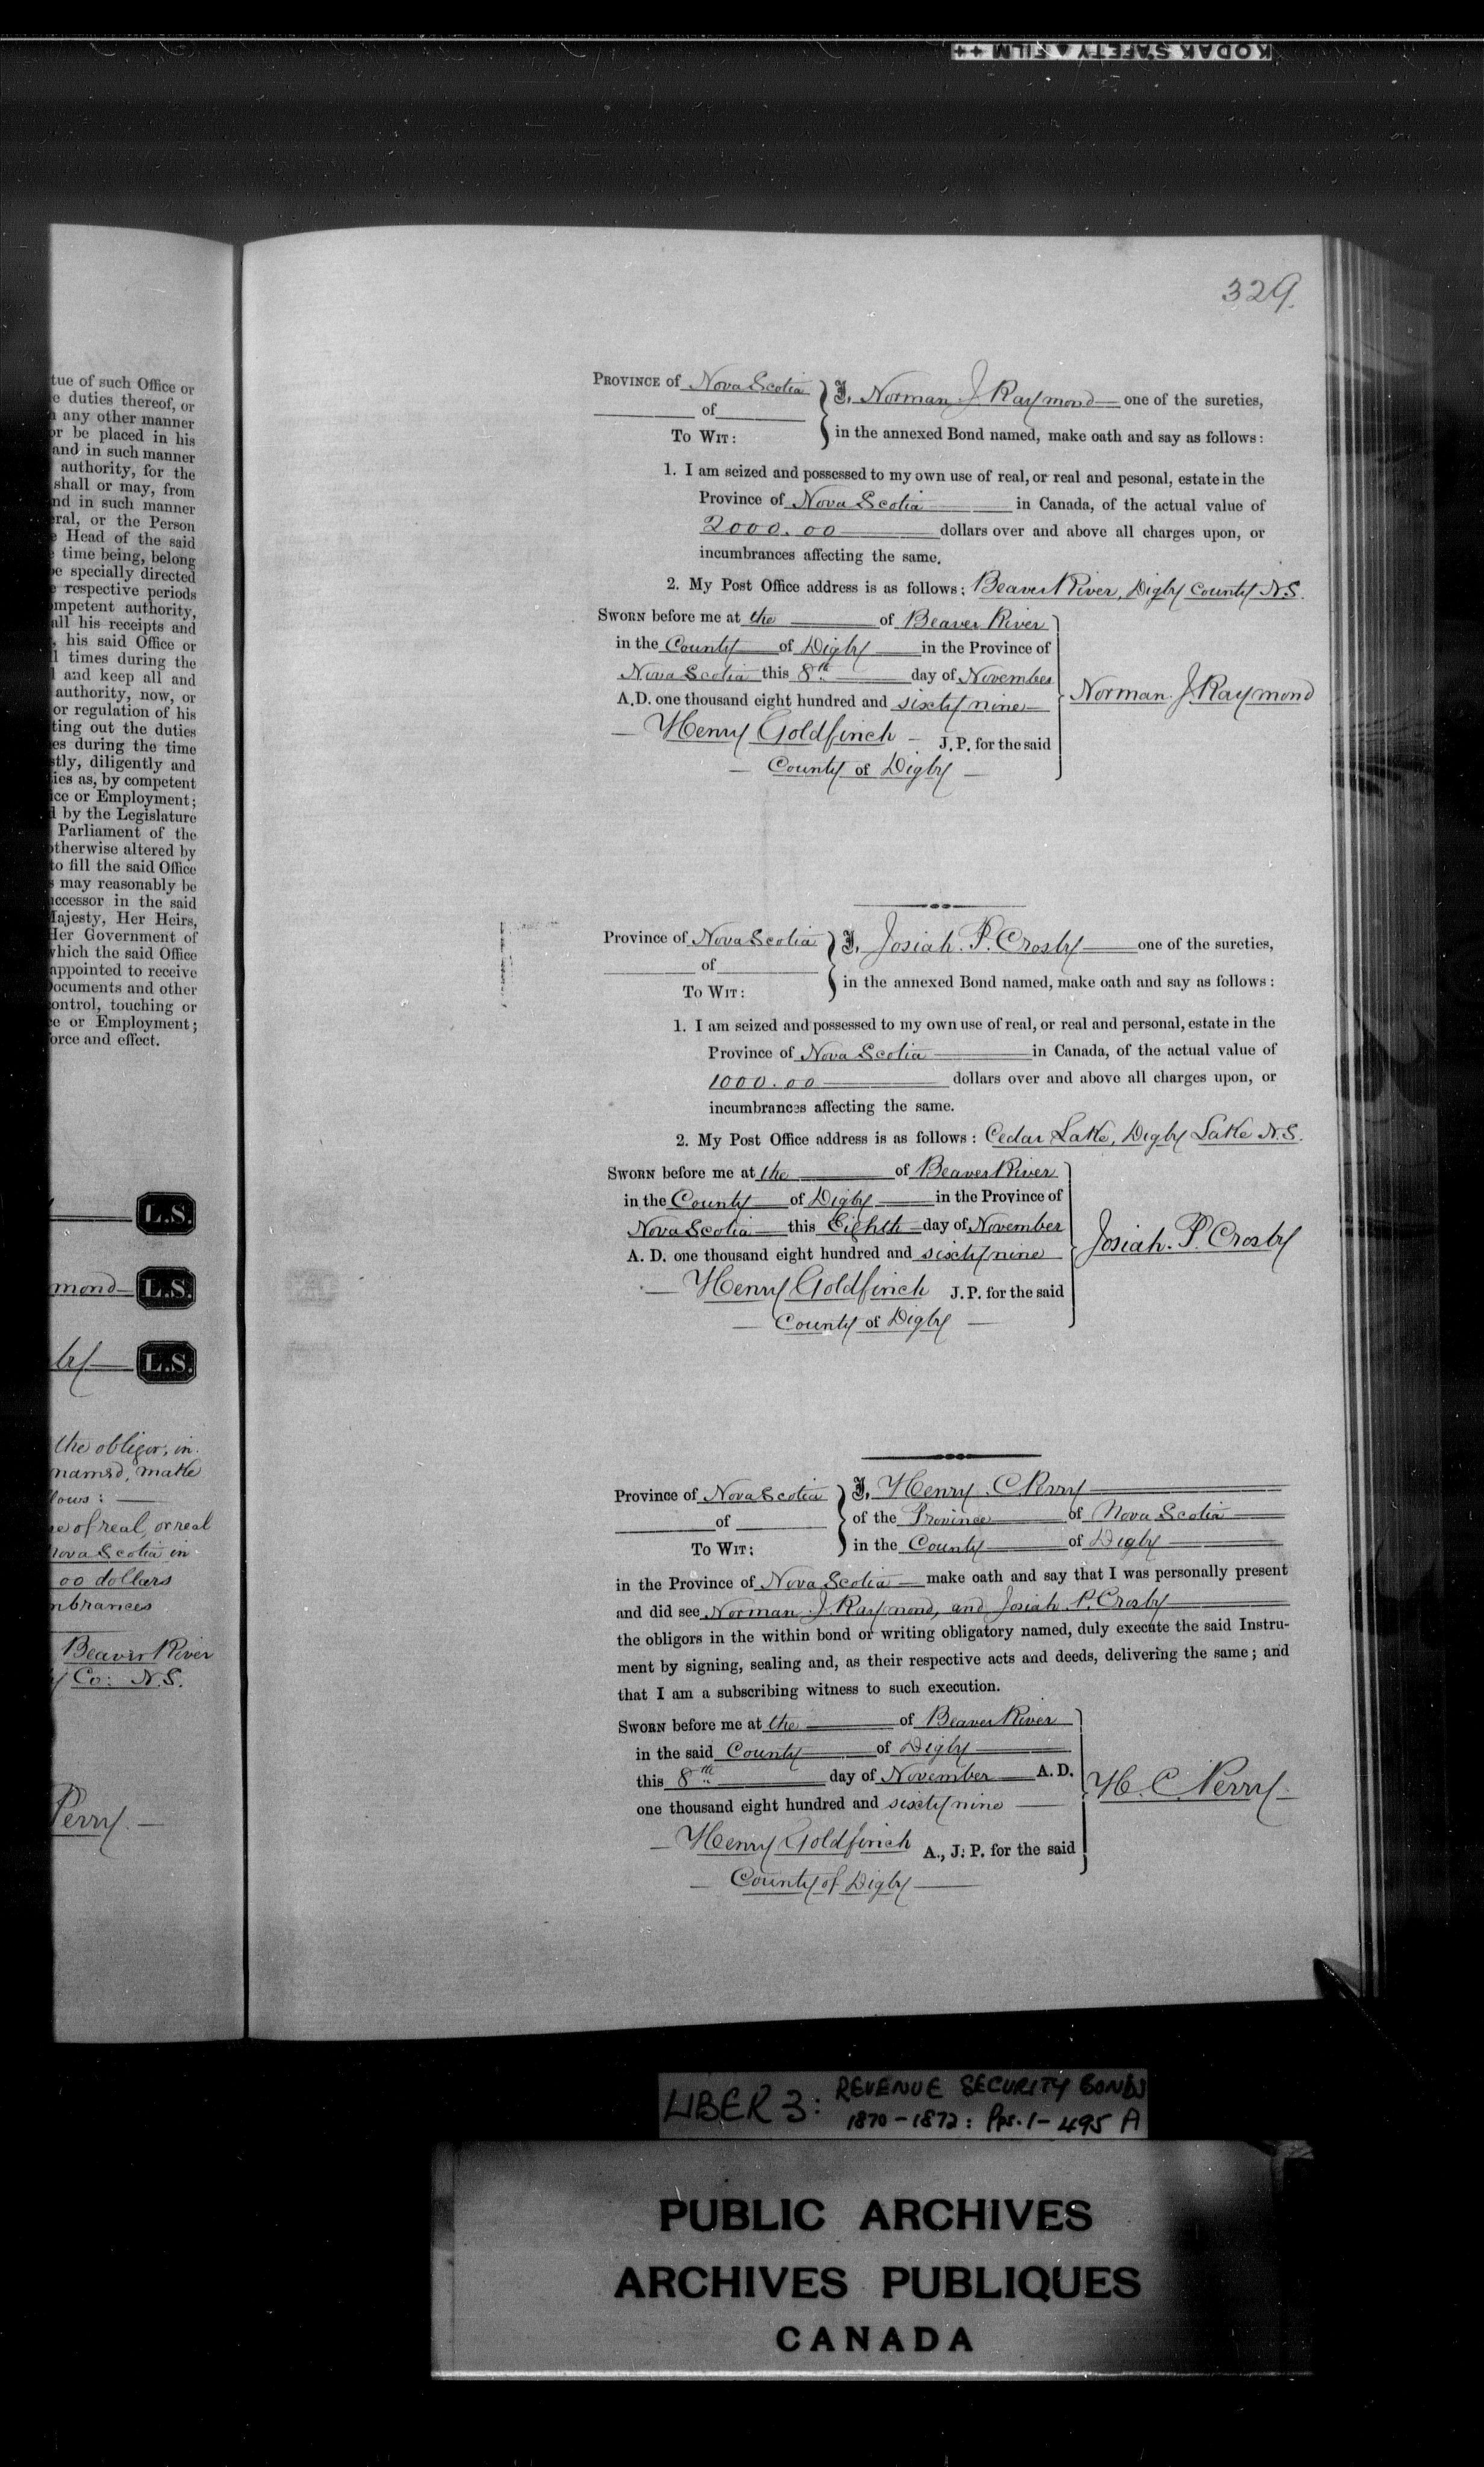 KODAK SAFETY ▲ FILM ++
tue of such Office or
e duties thereof, or
any other manner
or be placed in his
and in such manner
authority, for the
shall or may, from
nd in such manner
eral, or the Person
e Head of the said
e time being, belong
be specially directed
e respective periods
ompetent authority,
all his receipts and
, his said Office or
l times during the
l and keep all and
authority, now, or
or regulation of his
ting out the duties
es during the time
stly, diligently and
ties as, by competent
ice or Employment;
d by the Legislature
Parliament of the
otherwise altered by
to fill the said Office
s may reasonably be
uccessor in the said
Majesty, Her Heirs,
Her Government of
which the said Office
appointed to receive
Documents and other
control, touching or
ce or Employment;
force and effect.
L.S.
mond L.S.
by L.S.
the obligor, in
named, make
lows:
se of real, or real
Nova Scotia in
00 dollars
mbrances
Beaver River
y Co: N.S.
Perry.
329.
PROVINCE of Nova Scotia } I, Norman. J. Raymond one of the sureties,
of
To WIT: } in the annexed Bond named, make oath and say as follows:
1. I am seized and possessed to my own use of real, or real and pesonal, estate in the
Province of Nova Scotia in Canada, of the actual value of
2000.00 dollars over and above all charges upon, or
incumbrances affecting the same.
2. My Post Office address is as follows: Beaver River, Digby County N.S.
SWORN before me at the of Beaver River
in the County of Digby in the Province of
Nova Scotia this 8th day of November
A.D. one thousand eight hundred and sixty nine
Norman. J. Raymond
Henry Goldfinch J.P. for the said
County of Digby
Province of Nova Scotia } I, Josiah. P. Crosby one of the sureties,
of
To WIT: } in the annexed Bond named, make oath and say as follows:
1. I am seized and possessed to my own use of real, or real and personal, estate in the
Province of Nova Scotia in Canada, of the actual value of
1000.00 dollars over and above all charges upon, or
incumbrances affecting the same.
2. My Post Office address is as follows: Cedar Lake, Digby Lake N.S.
SWORN before me at the of Beaver River
in the County of Digby in the Province of
Nova Scotia this Eighth day of November
A. D. one thousand eight hundred and sixty nine
Josiah. P. Crosby
Henry Goldfinch J.P. for the said
County of Digby
Province of Nova Scotia } I, Henry. C. Perry
of of the Province of Nova Scotia
To WIT: } in the County of Digby
in the Province of Nova Scotia make oath and say that I was personally present
and did see Norman. J. Raymond, and Josiah. P. Crosby
the obligors in the within bond or writing obligatory named, duly execute the said Instru-
ment by signing, sealing and, as their respective acts and deeds, delivering the same; and
that I am a subscribing witness to such execution.
SWORN before me at the of Beaver River
in the said County of Digby
this 8th day of November A.D.
one thousand eight hundred and sixty nine
H. C. Perry
Henry Goldfinch A., J. P. for the said
County of Digby
LIBER 3: REVENUE SECURITY BONDS
1870-1872: Pps. 1-495 A
PUBLIC ARCHIVES
ARCHIVES PUBLIQUES
CANADA